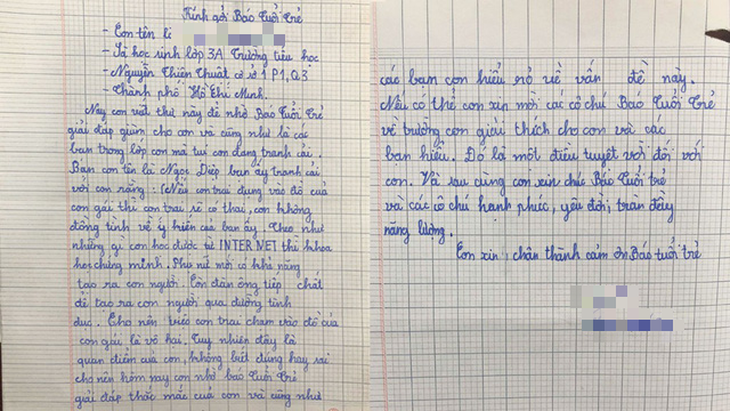 Kính gởi Báo Tuổi Trẻ
- Con tên là
- Là học sinh lớp 3A Trường tiểu học
- Nguyễn Thiện Thuật cơ sở 1 P1, Q3
- Thành phố Hồ Chí Minh.
Nay con viết thư này để nhờ Báo Tuổi Trẻ
giải đáp giùm cho con và cũng như là các
bạn trong lớp con mà tụi con đang tranh cãi.
Bạn con tên là Ngọc Diệp bạn ấy tranh cãi
với con rằng: (Nếu con trai đụng vào đồ của
con gái thì con trai sẽ có thai, con không
đồng tình về ý kiến của bạn ấy. Theo như
những gì con học được từ INTERNET thì khoa
học chứng minh. Phụ nữ mới có khả năng
tạo ra con người. Còn đàn ông tiếp chất
để tạo ra con người qua đường tình
dục. Cho nên việc con trai chạm vào đồ của
con gái là vô hại. Tuy nhiên đây là
quan điểm của con, không biết đúng hay sai
cho nên hôm nay con nhờ báo Tuổi Trẻ
giải đáp thắc mắc của con và cũng như
các bạn con hiểu rõ về vấn đề này.
Nếu có thể con xin mời các cô chú Báo Tuổi Trẻ
về trường con giải thích cho con và các
bạn hiểu. Đó là một điều tuyệt vời đối với
con. Và sau cùng con xin chúc Báo Tuổi trẻ
và các cô chú hạnh phúc, yêu đời, tràn đầy
năng lượng.
Con xin chân thành cảm ơn Báo tuổi trẻ